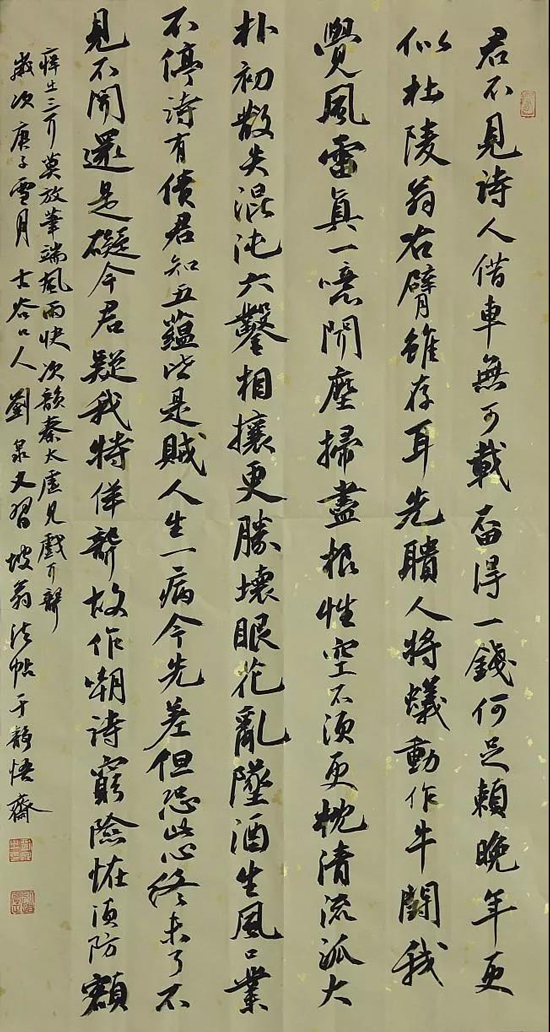 君不見詩人借車無可載畱得一錢何足賴晚年更
似杜陵翁右臂雖存耳先聵人將蟻動作牛鬪我
覺風雷真一噫聞塵掃盡根性空不須更枕清流派大
朴初散失混沌六鑿相攘更勝壞眼花亂墜酒生風口業
不停詩有債君知五蘊皆是賊人生一病今先差但恐此心終未了不
見不聞還是礙今君疑我特佯聾故作嘲詩窮險怪須防額
痒出三耳莫放筆端風雨快次韻秦太虛見戲耳聾
歲次庚子雪月古谷口人劉泉文習坡翁法帖于靜悟齋